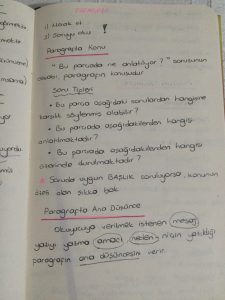 1) Merak et
2) Soruyu oku !
Paragrafta Konu
" Bu parçada ne anlatılıyor ? " sorusunun
cevabı, paragrafın konusudur
Soru Tipleri
• Bu parça aşağıdaki sorulardan hangisine
karşılık söylenmiş olabilir ?
• Bu parçada aşağıdakilerden hangisi
anlatılmaktadır ?
• Bu parçada aşağıdakilerden hangisi
üzerinde durulmaktadır ?
* Soruda uygun BAŞLIK soruluyorsa, konunun
olan şıkka bak.
Paragrafta Ana Düşünce
Okuyucuya verilmek istenen mesaj
yazıyı yazma amacı neden niçin yazıldığı
paragrafın ana düşüncesini verir.